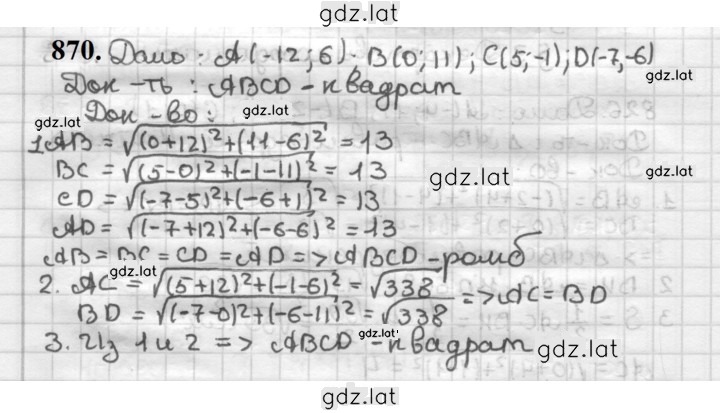 gdz.lat
870. Дано: A(-12; 6). B(0; 11); C(5; -1); D(-7; -6)
gdz.lat
Док-ть: ABCD - квадрат
gdz.lat
Док-во:
gdz.lat
1. AB = √(0+12)²+(11-6)² = 13
BC = √(5-0)²+(-1-11)² = 13
gdz.lat
gdz.lat
CD = √(-7-5)²+(-6+1)² = 13
AD = √(-7+12)²+(-6-6)² = 13
gdz.lat
AB = BC = CD = AD => ABCD - ромб
gdz.lat
2. AC = √(5+12)²+(-1-6)² = √338
BD = √(-7-0)²+(-6-11)² = √338 => AC = BD
gdz.lat
3. Из 1 и 2 => ABCD - квадрат
gdz.lat
gdz.lat